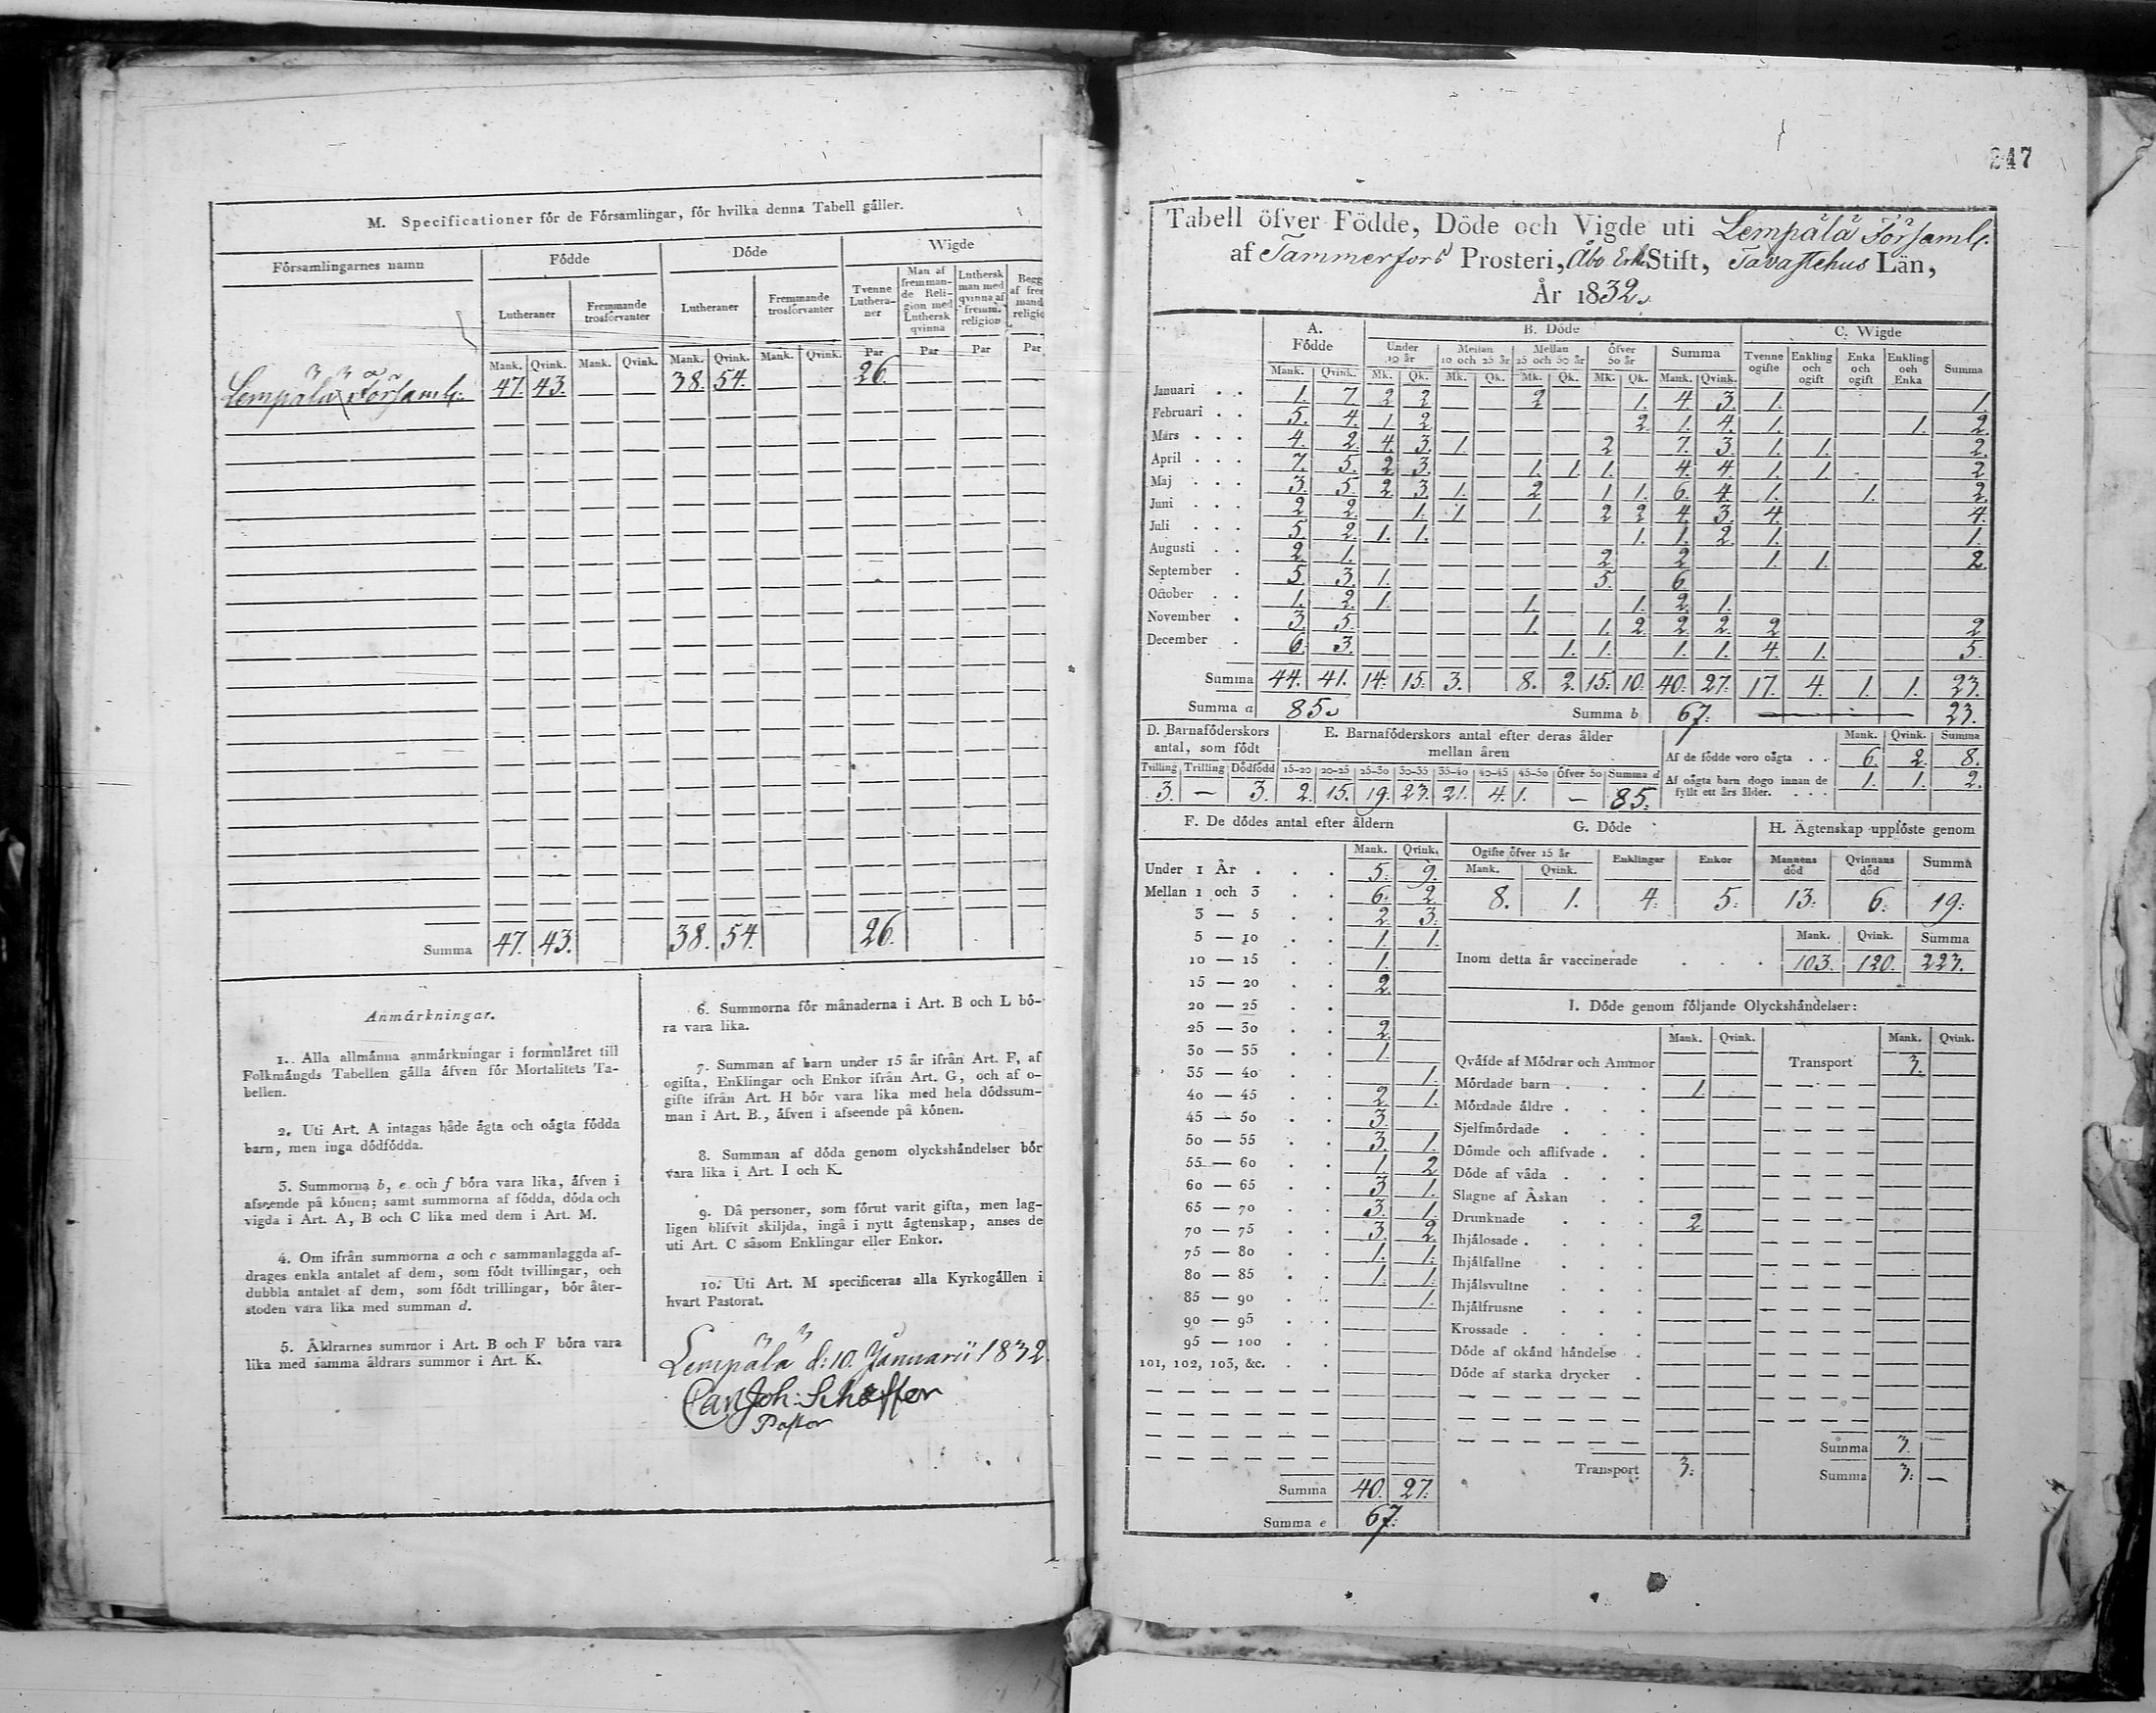 M. Specificationer för de Församlingar, för hvilka denna Tabell gäller.
Församlingarnes namn | Födde | Döde | Wigde
Lutheraner | Fremmande trosförvanter | Lutheraner | Fremmande trosförvanter | Tvenne Lutheraner | Man af fremmande Religion med Luthersk qvinna | Luthersk man med qvinna af fremm. religion
Mank. | Qvink. | Mank. | Qvink. | Mank. | Qvink. | Mank. | Qvink. | Par | Par | Par | Par
Lempälä Församl: 47. 43. — — 38. 54. — — 26.
Summa 47. 43. 38. 54. 26.
Anmärkningar.
1. Alla allmänna anmärkningar i formuläret till
Folkmängds Tabellen gälla äfven för Mortalitets Ta-
bellen.
2. Uti Art. A intagas både ägta och oägta födda
barn, men inga dödfödda.
3. Summorna b, e och f böra vara lika, äfven i
afseende på könen; samt summorna af födda, döda och
vigda i Art. A, B och C lika med dem i Art. M.
4. Om ifrån summorna a och c sammanlaggda af-
drages enkla antalet af dem, som födt tvillingar, och
dubbla antalet af dem, som födt trillingar, bör åter-
stoden vara lika med summan d.
5. Åldrarnes summor i Art. B och F böra vara
lika med samma åldrars summor i Art. K.
6. Summorna för månaderna i Art. B och L bö-
ra vara lika.
7. Summan af barn under 15 år ifrån Art. F, af
ogifta, Enklingar och Enkor ifrån Art. G, och af o-
gifte ifrån Art. H bör vara lika med hela dödssum-
man i Art. B., äfven i afseende på könen.
8. Summan af döda genom olyckshändelser bör
vara lika i Art. I och K.
9. Då personer, som förut varit gifta, men lag-
ligen blifvit skiljda, ingå i nytt ägtenskap, anses de
uti Art. C såsom Enklingar eller Enkor.
10. Uti Art. M specificeras alla Kyrkogällen i
hvart Pastorat.
Lempälä d: 10. Januarii 1832
Carl Joh: Scheffer
Pastor
247
Tabell öfver Födde, Döde och Vigde uti Lempälä Församl:
af Tammerfors Prosteri, Åbo Erke Stift, Tavastehus Län,
År 1832.
A. Födde | B. Döde | C. Wigde
Under 10 år | Mellan 10 och 25 år | Mellan 25 och 50 år | Öfver 50 år | Summa | Tvenne ogifte | Enkling och ogift | Enka och ogift | Enkling och Enka | Summa
Mank. | Qvink. | Mk. | Qk. | Mk. | Qk. | Mk. | Qk. | Mk. | Qk. | Mank. | Qvink.
Januari 1. 7. 2 2 — — 2 — — 1. 4. 3. 1. — — — 1.
Februari 5. 4. 1. 2 — — — — — 2. 1. 4. 1. — — 1. 2
Mars 4. 2. 4. 3. 1. — — — 2 — 7. 3. 1. 1. — — 2.
April 7. 5. 2 3. — — 1. 1. 1. — 4. 4. 1. 1. — — 2
Maj 3. 5. 2. 3. 1. — 2 — 1 1. 6. 4. 1. — 1. — 2.
Juni 2 2. — 1. 1 — 1. — 2 2 4. 3. 4. — — — 4.
Juli 5. 2. 1. 1. — — — — — 1. 1. 2. 1. — — — 1.
Augusti 2 1. — — — — — — 2. — 2 — 1. 1. — — 2.
September 5 3. 1. — — — — — 5. — 6 — — — — — —
October 1. 2. 1. — — — 1. — — 1. 2. 1. — — — — —
November 3. 5. — — — — 1. — 1. 2. 2 2. 2 — — — 2
December 6. 3. — — — — — 1. 1. — 1. 1. 4. 1. — — 5.
Summa 44. 41. 14. 15. 3. 8. 2. 15. 10. 40. 27. 17. 4. 1. 1. 23.
Summa a 85. Summa b 67. 23.
D. Barnaföderskors antal, som födt
Tvilling | Trilling | Dödfödd
3. — 3.
E. Barnaföderskors antal efter deras ålder mellan åren
15-20 | 20-25 | 25-30 | 30-35 | 35-40 | 40-45 | 45-50 | Öfver 50 | Summa d
2. 15. 19. 23. 21. 4. 1. — 85.
Mank. | Qvink. | Summa
Af de födde voro oägta 6. 2. 8.
Af oägta barn dogo innan de fyllt ett års ålder. 1. 1. 2.
F. De dödes antal efter åldern
Mank. | Qvink.
Under 1 År 5. 9.
Mellan 1 och 3 6. 2
3 — 5 2. 3.
5 — 10 1. 1.
10 — 15 1.
15 — 20 2.
20 — 25
25 — 30 2.
30 — 55 1.
35 — 40 1.
40 — 45 2 1.
45 — 50 3.
50 — 55 3. 1.
55 — 60 1. 2
60 — 65 3 1.
65 — 70 3. 1.
70 — 75 3. 2.
75 — 80 1. 1.
80 — 85 1. 1.
85 — 90 1.
90 — 95
95 — 100
101, 102, 103, &c.
Summa 40. 27.
Summa e 67.
G. Döde
Ogifte öfver 15 år | Enklingar | Enkor
Mank. | Qvink.
8. 1. 4. 5.
H. Ägtenskap upplöste genom
Mannens död | Qvinnans död | Summa
13. 6. 19.
Mank. | Qvink. | Summa
Inom detta år vaccinerade 103. 120. 223.
I. Döde genom följande Olyckshändelser:
Mank. | Qvink. | Mank. | Qvink.
Qväfde af Mödrar och Ammor | Transport 3.
Mördade barn 1.
Mördade äldre
Sjelfmördade
Dömde och aflifvade
Döde af våda
Slagne af Åskan
Drunknade 2
Ihjälosade
Ihjälfallne
Ihjälsvultne
Ihjälfrusne
Krossade
Döde af okänd händelse
Döde af starka drycker
Summa 3. —
Transport 3. Summa 3. —